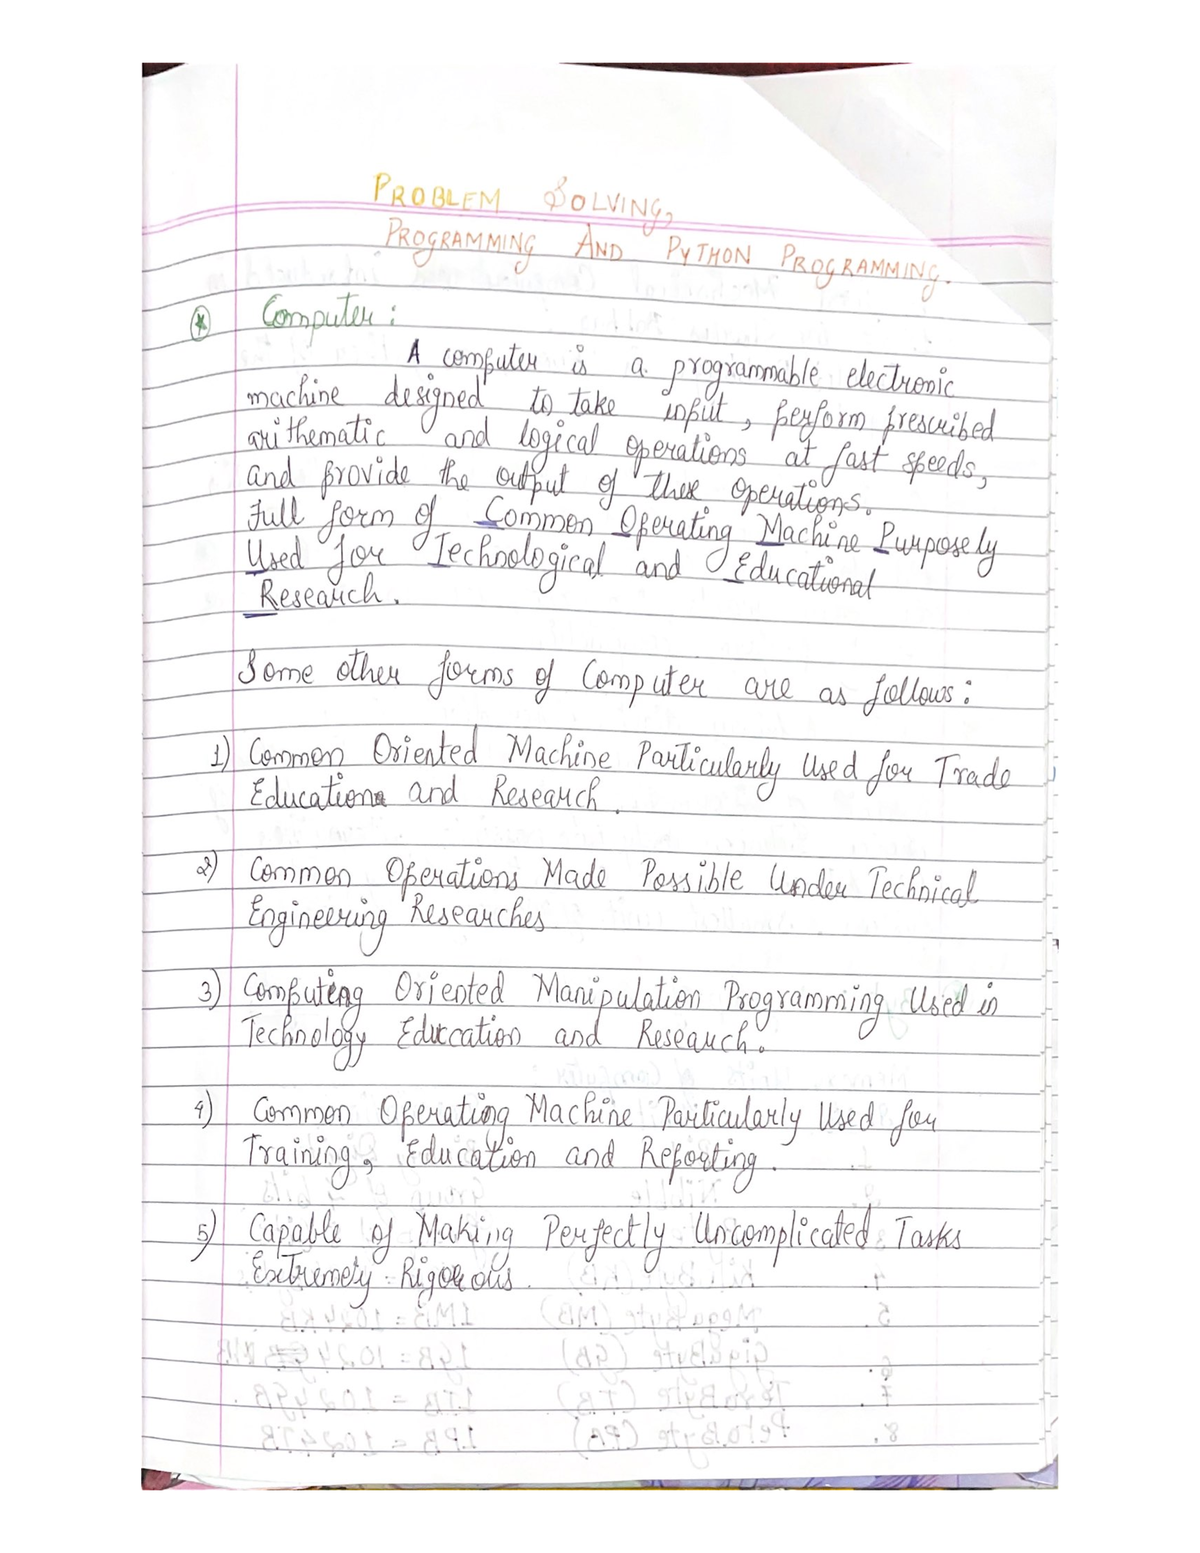 PROBLEM SOLVING,
PROGRAMMING AND PYTHON PROGRAMMING.
* Computer :
A computer is a programmable electronic
machine designed to take input, perform prescribed
arithematic and logical operations at fast speeds,
and provide the output of these operations.
Full form of Common Operating Machine Purposely
Used for Technological and Educational
Research.
Some other forms of Computer are as follows:
1) Common Oriented Machine Particularly Used for Trade
Education and Research.
2) Common Operations Made Possible Under Technical
Engineering Researches
3) Computing Oriented Manipulation Programming Used in
Technology Education and Research.
4) Common Operating Machine Particularly Used for
Training, Education and Reporting.
5) Capable of Making Perfectly Uncomplicated Tasks
Extremely Rigorous.